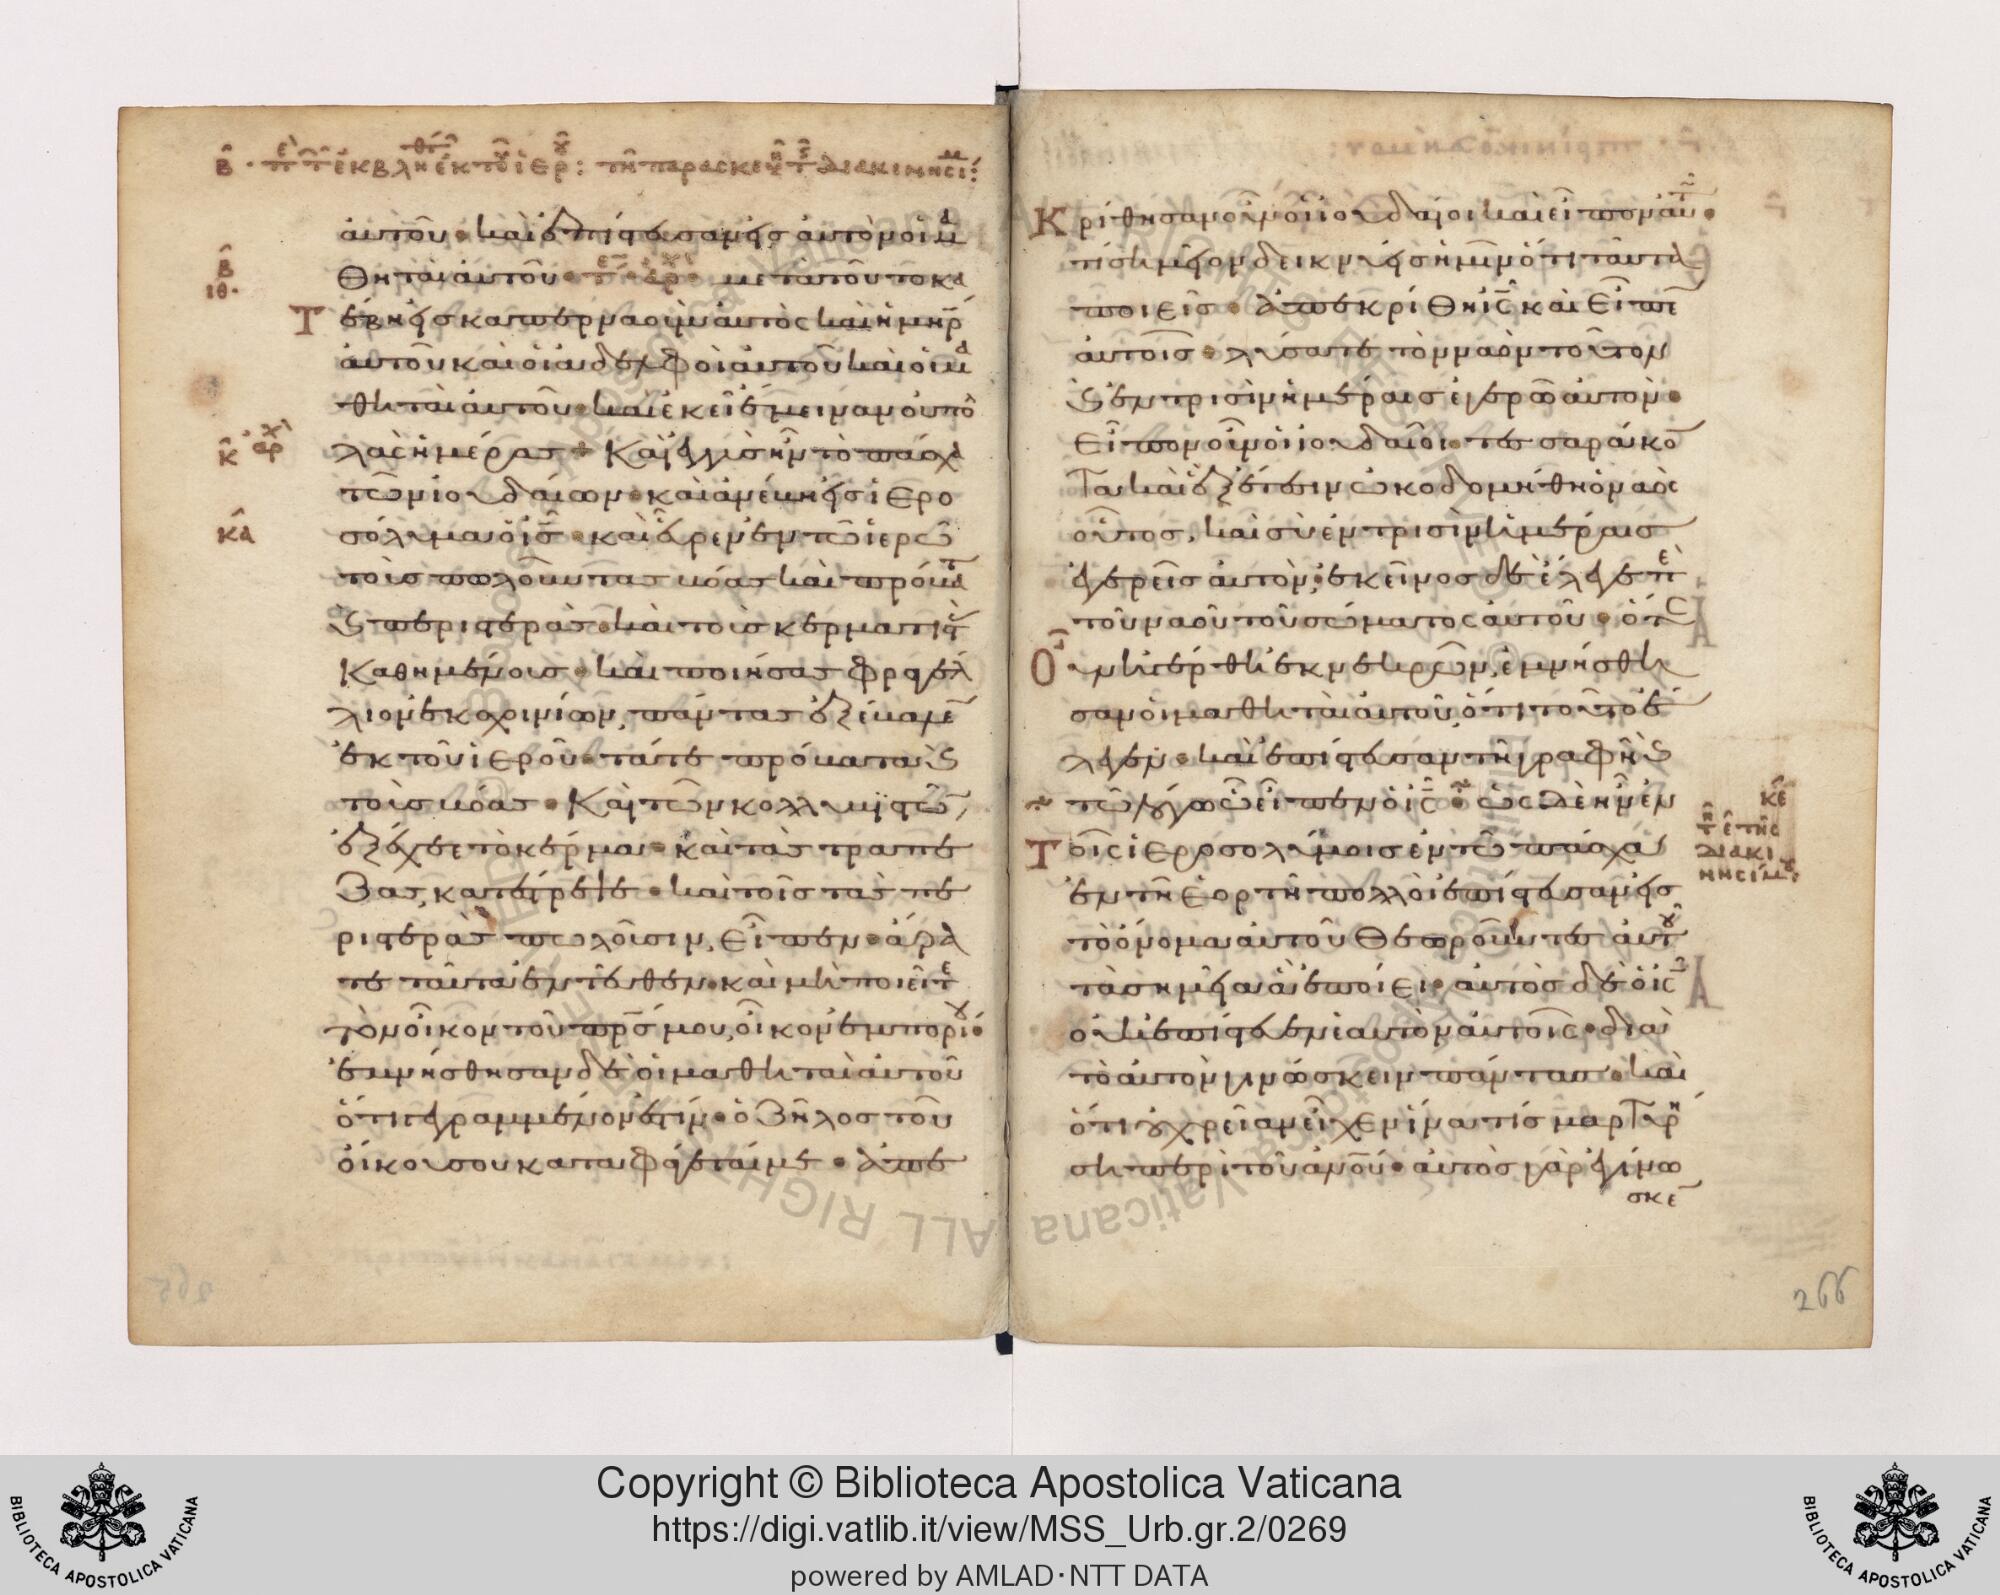 β · πε τ ἐκβληθεν ἐκ τοῦ ἱερου : τῇ παρασκευῇ τ διακινησίμου :
αὐτοῦ · καὶ ἐπίστευσαν εἰς αὐτὸν οἱ μα
θηταὶ αὐτοῦ · τε · αρχ · μετὰ τοῦτο κα
β
ιθ
τέβη εἰς καπερναοὺμ αὐτὸς καὶ ἡ μηρ
αὐτοῦ καὶ οἱ ἀδελφοὶ αὐτοῦ καὶ οἱ μα
θηταὶ αὐτοῦ · καὶ ἐκεῖ ἔμειναν οὐ πο
κ αρχ
λὰς ἡμέρας + Καὶ ἐγγὺς ἦν τὸ πάσχα
τῶν ἰουδαίων · καὶ ἀνέβη εἰς ἱερο
κα
σόλυμα ὁ ις · καὶ εὗρεν ἐν τῶ ἱερῶ
τοὺς πωλοῦντας βόας καὶ πρόβατα
ϗ περιστερὰς · καὶ τοὺς κερματιστὰς
καθημένους · καὶ ποιήσας φραγέλ
λιον ἐκ σχοινίων, πάντας ἐξέβαλεν
ἐκ τοῦ ἱεροῦ · τά τε πρόβατα ϗ
τοὺς βόας · Καὶ τῶν κολλυβιστῶν
ἐξέχεε τὸ κέρμα · καὶ τὰς τραπέ
ζας κατέστρεψε · καὶ τοῖς τὰς πε
ριστερὰς πωλοῦσιν, εἶπεν · ἄρα
τε ταῦτα ἐντεῦθεν · καὶ μὴ ποιεῖτε
τὸν οἶκον τοῦ πρς μου, οἶκον ἐμπορίου ·
ἐμνήσθησαν δὲ οἱ μαθηταὶ αὐτοῦ
ὅτι γεγραμμένον ἐστίν · ὁ ζῆλος τοῦ
οἴκου σου καταφάγεταί με · ἀπε
κρίθησαν οὖν οἱ ἰουδαῖοι καὶ εἶπον αὐτῶ ·
τί σημεῖον δεικνύεις ἡμῖν ὅτι ταῦτα
ποιεῖς · ἀπεκρίθη ις καὶ εἶπε
αὐτοῖς · λύσατε τὸν ναὸν τοῦτον
ϗ ἐν τρισὶν ἡμέραις ἐγερῶ αὐτὸν ·
εἶπον οὖν οἱ ἰουδαῖοι · τεσσαράκο
ντα καὶ ἓξ ἔτεσιν ὠκοδομήθη ὁ ναὸς
οὗτος, καὶ σὺ ἐν τρισὶν ἡμέραις
ἐγερεῖς αὐτὸν; ἐκεῖνος δὲ ἔλεγε πε
τοῦ ναοῦ τοῦ σώματος αὐτοῦ · ὅτε
οὖν ἠγέρθη ἐκ νεκρῶν, ἐμνήσθη
σαν οἱ μαθηταὶ αὐτοῦ, ὅτι τοῦτο ἔ
λεγεν · καὶ ἐπίστευσαν τῇ γραφῇ ϗ
τῶ λόγω ὧ εἶπεν ὁ ις · ὡς δὲ ἦν ἐν
κε
τ ε της
διακι
νησίμου
τοῖς ἱεροσολύμοις ἐν τῶ πάσχα
ἐν τῇ ἑορτῇ πολλοὶ ἐπίστευσαν εἰς
τὸ ὄνομα αὐτοῦ θεωροῦντες αὐτοῦ
τὰ σημεῖα ἃ ἐποίει · αὐτὸς δὲ ὁ ις
οὐκ ἐπίστευεν ἑαυτὸν αὐτοῖς · διὰ
τὸ αὐτὸν γινώσκειν πάντας · καὶ
ὅτι οὐ χρείαν εἶχεν ἵνα τίς μαρτυρή
ση περὶ τοῦ ανου · αὐτὸς γὰρ ἐγίνω
σκε
266
Copyright © Biblioteca Apostolica Vaticana
https://digi.vatlib.it/view/MSS_Urb.gr.2/0269
powered by AMLAD·NTT DATA
BIBLIOTECA APOSTOLICA VATICANA
BIBLIOTECA APOSTOLICA VATICANA